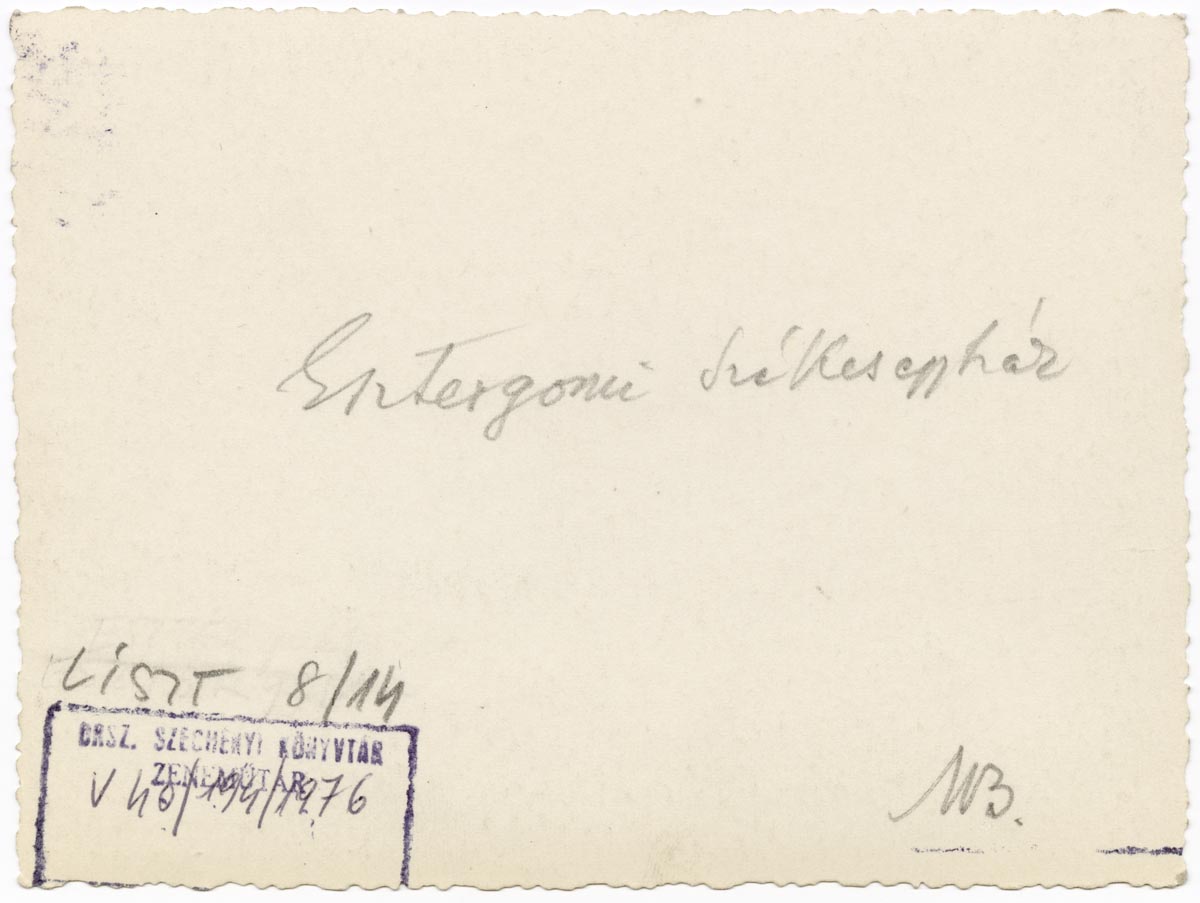 Esztergomi székesegyház
LISZT 8/14
ORSZ. SZÉCHÉNYI KÖNYVTÁR
ZENEMŰTÁR
V 40/194/1976